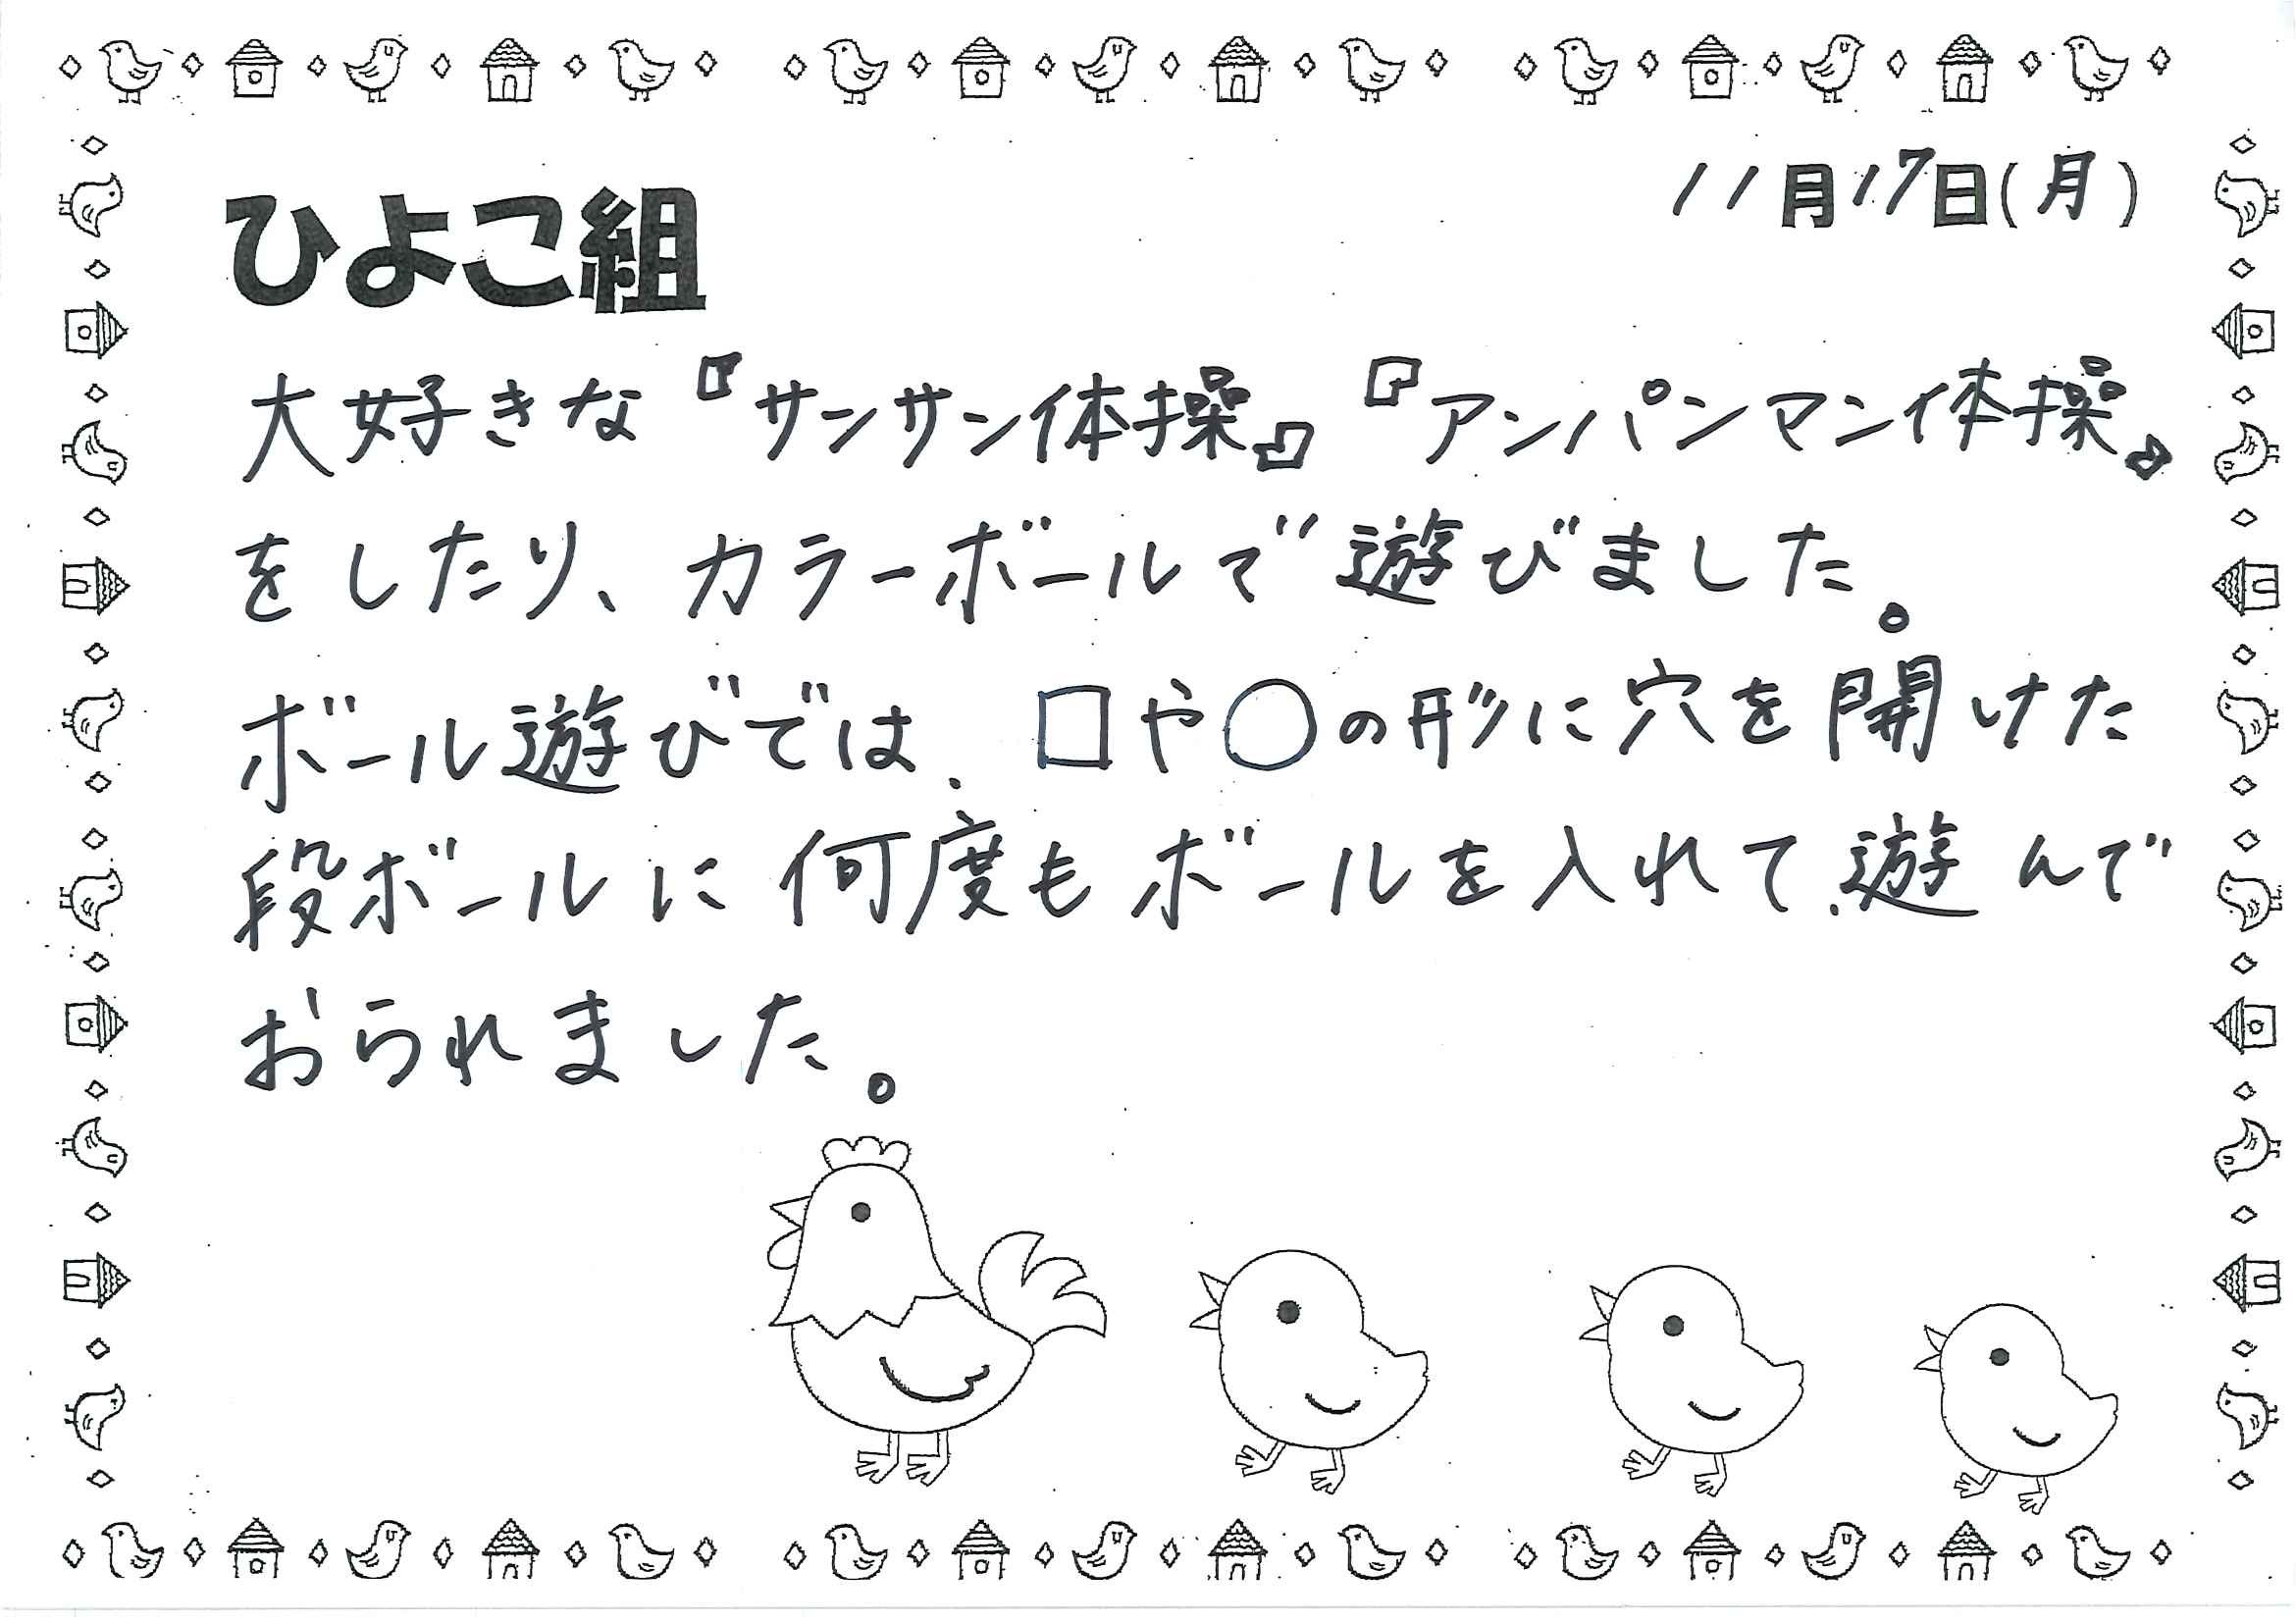 11月17日(月)
ひよこ組
大好きな『サンサン体操』『アンパンマン体操』
をしたり、カラーボールで遊びました。
ボール遊びでは、□や○の形に穴を開けた
段ボールに何度もボールを入れて、遊んで
おられました。